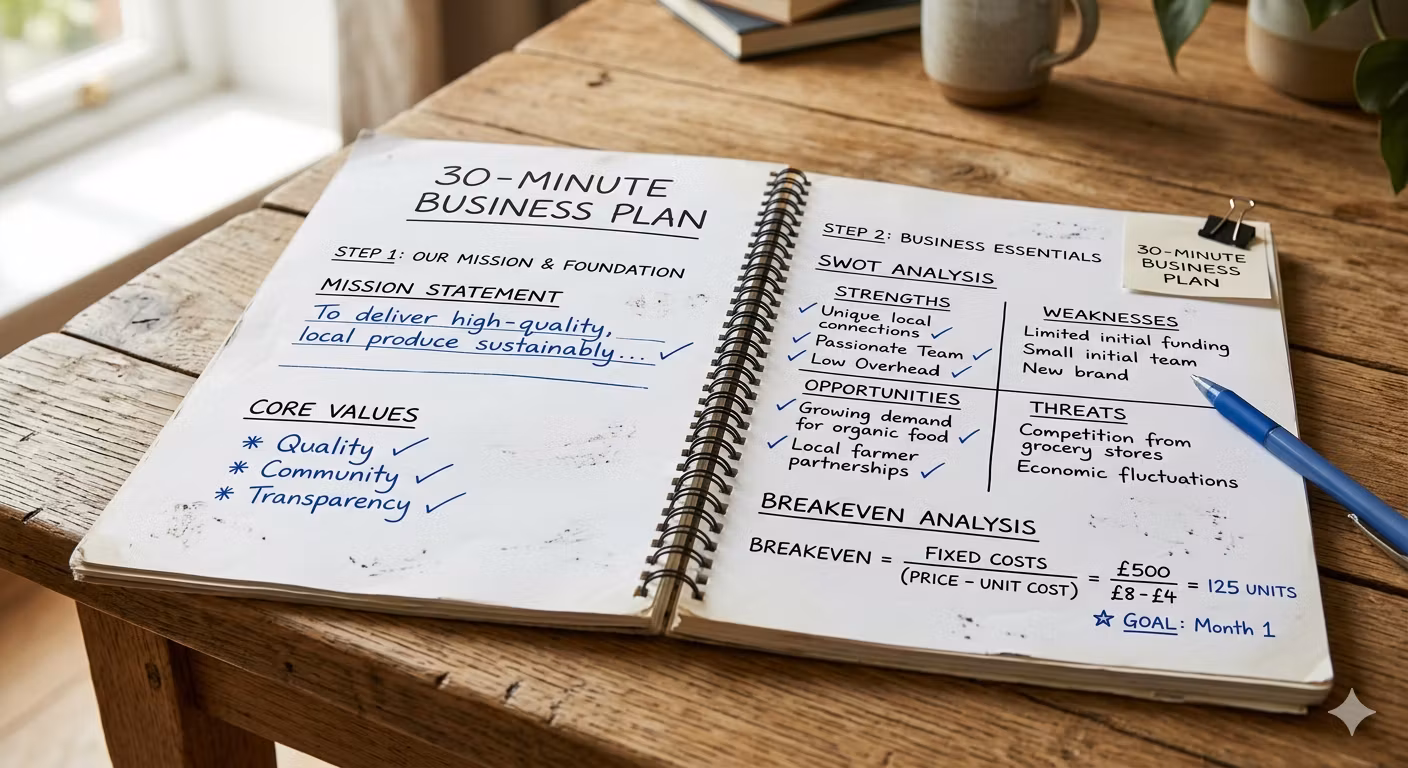 30-MINUTE
BUSINESS PLAN
STEP 1: OUR MISSION & FOUNDATION
MISSION STATEMENT
To deliver high-quality,
local produce sustainably... ✓
CORE VALUES
* Quality ✓
* Community ✓
* Transparency ✓
STEP 2: BUSINESS ESSENTIALS
SWOT ANALYSIS
STRENGTHS
✓ Unique local
connections ✓
✓ Passionate Team ✓
✓ Low Overhead ✓
WEAKNESSES
Limited initial funding
Small initial team
New brand
OPPORTUNITIES
✓ Growing demand
for organic food ✓
✓ Local farmer
partnerships ✓
THREATS
Competition from
grocery stores
Economic fluctuations
BREAKEVEN ANALYSIS
BREAKEVEN = FIXED COSTS / (PRICE - UNIT COST) = £500 / £8-£4 = 125 UNITS
☆ GOAL: Month 1
30-MINUTE
BUSINESS
PLAN